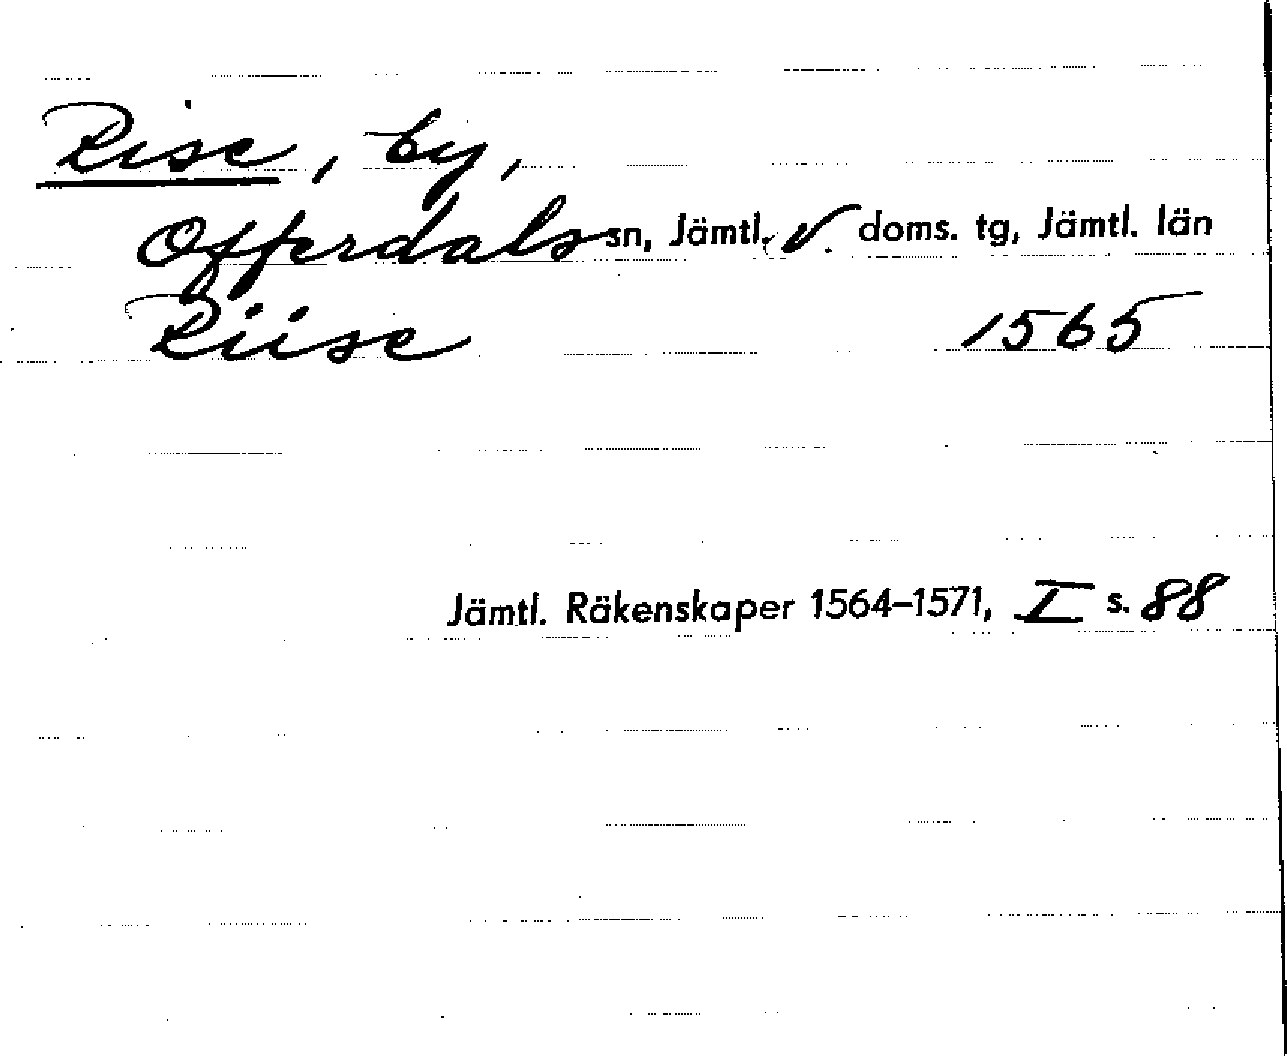 Rise, by,
Offerdals sn, Jämtl. v. doms. tg, Jämtl. län
Riise 1565
Jämtl. Räkenskaper 1564–1571, I s. 88